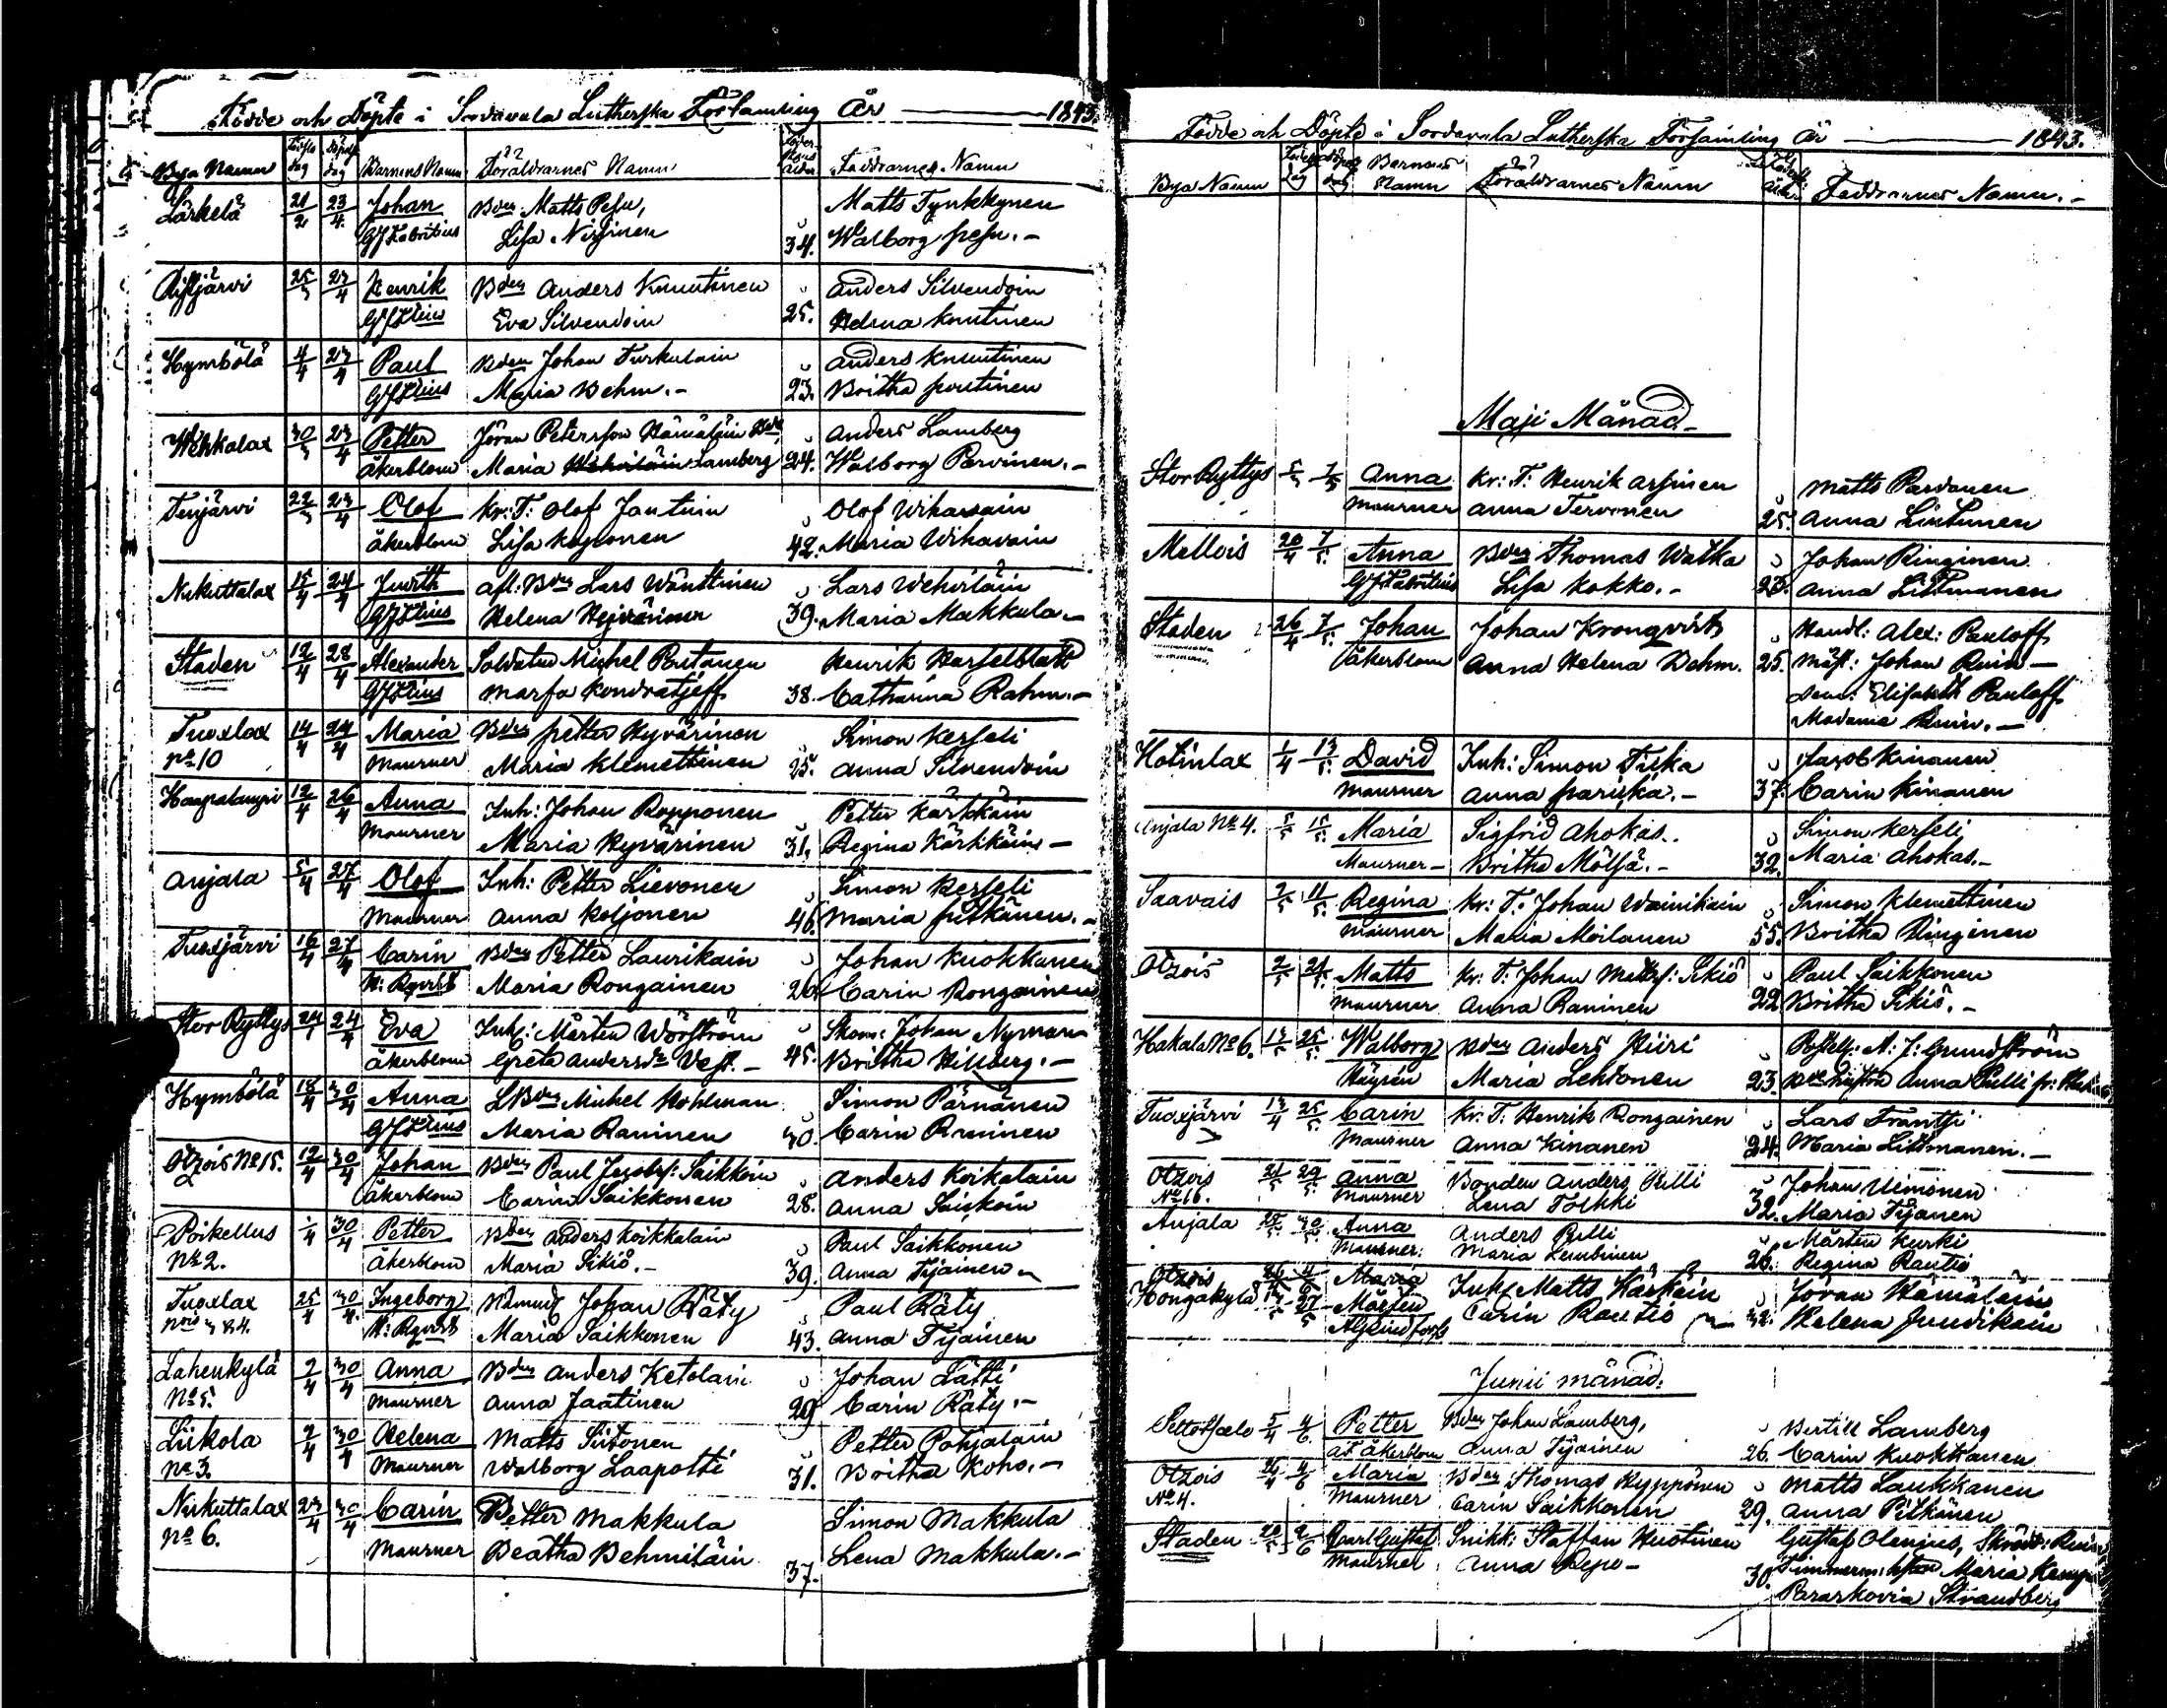 Födde och Döpte i Sordavala Lutherska Församling År — 1843.
Bya Namn Födelse dag Döpelse dag Barnens Namn Föräldrarnes Namn Ålder Faddrarnes Namn
Lärkelä 21/2 23/4 Johan Bden Matts Pesu, Matts Tynkkynen
GJ Fabritius Lisa Nissinen 34. Walborg pesu.-
25/3 23/4 Henrik Bden Anders Knuutinen Anders Silvendoin
Eva Silvendoin 25. Helena Knutinen
Hymbölä 4/4 23/4 Paul Bden Johan Turkulain Anders Knuutinen
Maria Behm.- 23. Britha poutinen
Wehkalax 30/3 23/4 Petter Jöran Petersson Hämäläin Anders Lamberg
åkerblom Maria Lamberg 24. Walborg Parvinen.-
Tenjärvi 22/3 23/4 Olof Kr: T. Olof Jantuin Olof Wihavain
åkerblom Lisa Kopponen 42. Maria Wihavain
Nukuttalax 15/4 24/4 Judith afl: Bden Lars Wänttinen Lars Wehviläin
Helena Hyvärinen 39. Maria Makkula.-
Staden 12/4 28/4 Alexander Soldaten Michel Pautanen Henrik Hasselblatt
Marfa Kondratjeff 38. Catharina Rahm.-
Tuoxlax 14/4 24/4 Maria Bden petter Hyvärinen Simon Kerseli
No 10 Maurner Maria Klemettinen 25. Anna Silvendoin
Haapalampi 12/4 26/4 Anna Inh: Johan Ropponen Petter Kärkkäin
Maurner Maria Hyvärinen 31. Regina Kärkkäin -
Anjala 5/4 27/4 Olof Inh: Petter Lievonen Simon Kerseli
Maurner Anna Koljonen 46. Maria pitkänen.-
Tuoxjärvi 16/4 27/4 Carin Bden Petter Laurikain Johan Kuokkanen
Maria Rongainen 26. Carin Rongainen
Stor Ryttys 24/4 24/4 Eva Inh: Mårten Johan Nyman
åkerblom Greta Andersdr 45. Britha Hillberg.-
Hymbölä 18/4 30/4 Anna LBden Michel Kohlman Simon Pärnänen
Maria Raninen 30 Carin Raninen
Otzois No 15. 12/4 30/4 Johan Bden Paul Jacobs: Saikkoin Anders Koikalain
åkerblom Carin Saikkonen 28. Anna Saikoin
Poikellus 1/4 30/4 Petter Bden Anders Koikkalain Paul Saikkonen
No 2. åkerblom Maria Sikiö.- 39. Anna Tijainen
Tuoxlax 25/4 30/4. Ingeborg Johan Räty Paul Räty
Maria Saikkonen 43. Anna Tijainen
Lahenkylä 2/4 30/4 Anna Bden Anders Ketolain Johan Lätti
No 5. Maurner Anna Jaatinen 29 Carin Räty.-
Liikola 2/4 30/4 Helena Matts Siitonen Petter Pohjalain
No 3. Maurner Walborg Laapotti 31. Britha Koho.-
Nukuttalax 23/4 30/4 Carin Petter Makkula Simon Makkula
No 6. Maurner Beatha Behmiläin 37. Lena Makkula.-
Födde och Döpte i Sordavala Lutherska Församling År — 1843.
Bya Namn Födelse dag Barnens Namn Föräldrarnes Namn Ålder Faddrarnes Namn.-
Maji Månad
Stor Ryttys 5/3 7/5 Anna Kr: T. Henrik Assinen Matts Pardanen
Maurner Anna Tervonen 25. Anna Lintunen
Mellois 20/4 7/5. Anna Bden Thomas Watka Johan Ringinen
GJ Fabritius Lisa Kokko.- 23. Anna Littmanen
Staden 26/4 7/5. Johan Johan Kronqvist Handl: Alex: Pauloff
åkerblom Anna Helena Behm. 25. Mäst: Johan Ruin -
Dem: Elisabeth Pauloff
Madame Ruin.-
Hotinlax 1/4 13/5. David Inh: Simon Tiska Jacob Kinanen
Maurner Anna pariska.- 37. Carin Kinanen
Anjala No 4. 5/5 15/5. Maria Sigfrid Ahokas. Simon Kerseli
Maurner - Britha Mölsä.- 32. Maria Ahokas.-
Saavais 2/5 11/5. Regina Kr: T. Johan Wainikain Simon Klemettinen
Maurner Maria Moilanen 35. Britha Ringinen
Otzois 2/5 21/5. Matts Kr: T. Johan Mattss: Sikiö Paul Saikkonen
Maurner Anna Raninen 22 Britha Sikiö.-
Hakala No 6. 13/5 25/5. Walborg Bden Anders Hiiri A: J: Grundström
Häyrén Maria Lehtonen 23. Anna
Tuoxjärvi 13/4 25/5. Carin Kr: T. Henrik Rongainen Lars Trantti
Maurner Anna Kinanen 24. Maria Littmanen.-
Otzois 21/5 29/5. Anna Bonden Anders Pulli Johan Uimonen
No 16. Maurner Lena Tolkki 32. Maria Tijanen
Anjala Anna Anders Pulli Mårten Kurki
Maurner: Maria Lembinen 26. Regina Rautio
Otzois Maria
Hongakylä 27/5 Mårten Inh: Matts Kärkäin Jöran Hämäläin
Carin Rautio 32. Helena Junnikain
Junii månad.
5/4 4/6. Petter Bden Johan Lamberg, Bertill Lamberg
af åkerblom Anna Tijainen 26. Carin Kuokkanen
Otzois 4/6 Maria Bden Thomas Hyppönen Matts Laukkanen
No 4. Maurner Carin Saikkonen 29. Anna Pitkänen
Staden 20/5 2/6 Carl Gustaf Snikk: Staffan Huotinen Gustaf Olenius,
Maurner Anna Repo - 30. Maria
Paraskovia Strandberg